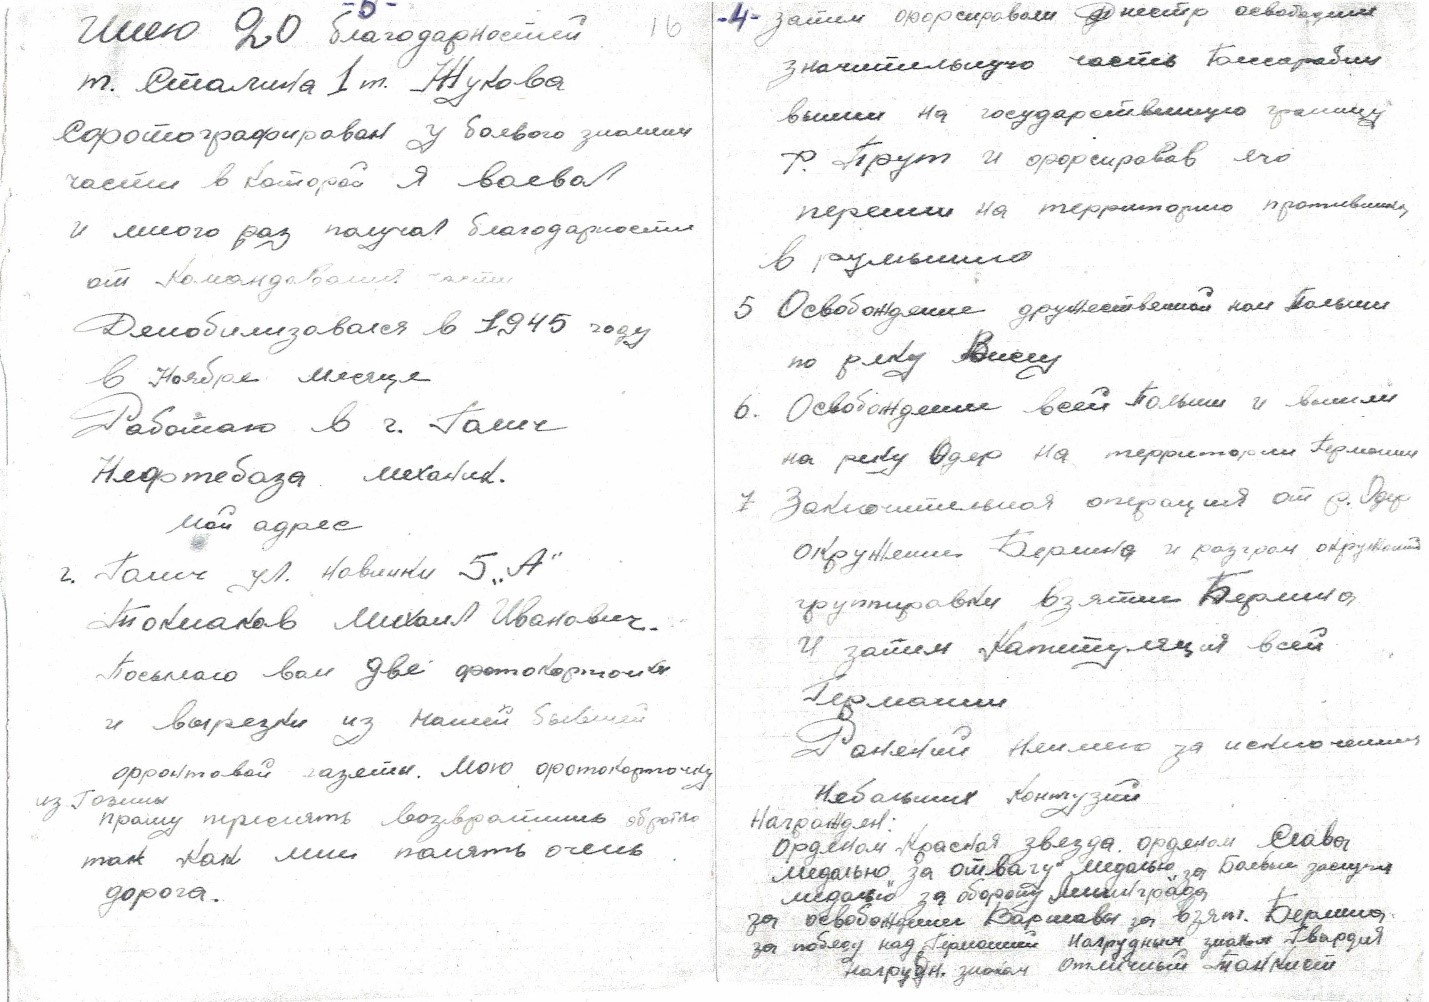 -5-
16
Имею 20 благодарностей
т. Сталина 1 т. Жукова
Сфотографирован у боевого знамени
части в которой я воевал
и много раз получал благодарности
от командования части
Демобилизовался в 1945 году
в Ноябре месяце
Работаю в г. Галич
Нефтебаза механик.
мой адрес
г. Галич ул. Навлики 5 „А"
Токмаков Михаил Иванович.
Посылаю вам две фотокарточки
и вырезки из нашей бывшей
фронтовой газеты. Мою фотокарточку
из
прошу переснять возвратить обратно
так как мне память очень
дорога.
-4- затем форсировали Днестр освободили
значительную часть Бессарабии
вышли на государственную границу
р. Прут и форсировав его
перешли на территорию противника
в румынию
5 Освобождение дружественной нам Польши
по реку Вислу
6. Освобождение всей Польши и вышли
на реку Одер на территории Германии
7 Заключительная операция от р. Одер
окружение Берлина и разгром окруженной
группировки взятие Берлина
И затем Капитуляция всей
Германии
Ранений неимею за исключением
небольших контузий
Награжден:
Орденом Красная звезда. орденом Слава
медалью „за отвагу" медалью за боевые заслуги
медалью за оборону Ленинграда
за освобождение Варшавы за взят. Берлина.
за победу над Германией Нагрудным знаком Гвардия
нагрудн. знаком отличный танкист